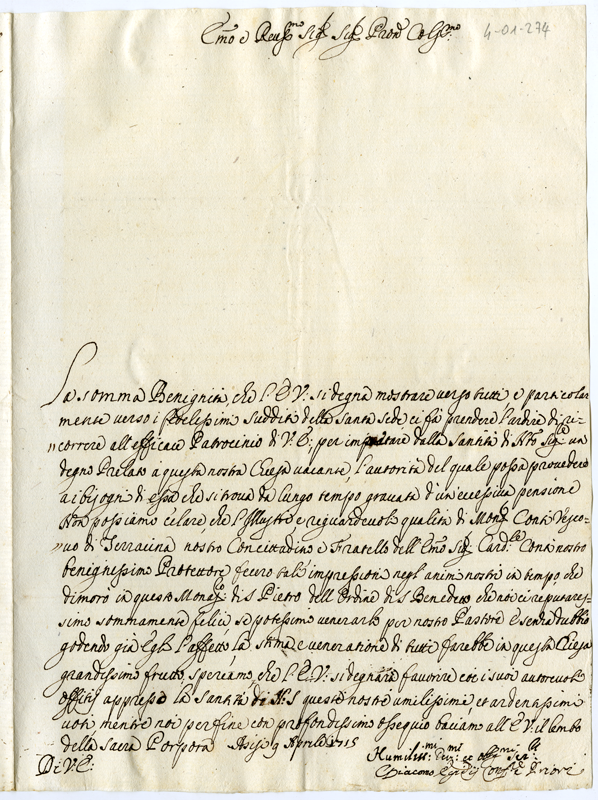 Emo e Reusmo Sigr Sigr Pron Colmo
4-01-274
La somma Benignità, che l'E.V. si degna mostrare verso tutti e particolar
mente verso i fedelissimi sudditi della Santa Sede, ci fà prendere l'ardire di ri-
correre all'efficace Patrocinio di V.E. per impetrare dalla Santità di Nro Sigre un
degno Prelato a questa nostra Chiesa vacante, l'autorità del quale possa provedere
a i bisogni di essa che si trova da lungo tempo gravata d'un eccessiva pensione
Non possiamo celare, che l'Illustri e reguardevoli qualità di Monsr Conti Vesco-
vo di Terracina nostro Concittadino e Fratello dell'Emo Sigr Cardle Conti nostro
benignissimo Protettore fecero tale impressioni negl'animi nostri in tempo, che
dimorò in questo Monrio di S. Pietro dell'Ordine di S. Benedetto che noi ci reputares-
simo sommamente felici, se potessimo venerarlo per nostro Pastore e senza dubbio
godendo già Egli l'affetto, la stima e veneratione di tutti farebbe in questa Chiesa
grandissimo frutto, speriamo, che l'E.V. si degnarà favorire con i suoi autorevoli
Offitij appresso la Santità di N.S. questi nostri umilissimi et ardentissimi
voti mentre noi per fine con profondissimo ossequio baciamo all'E.V. il lembo
della Sacra Porpora Asisi 9 Aprile 1715
Di V.E.
Humilissmi et obbmi
Giacomo Egidij Priori